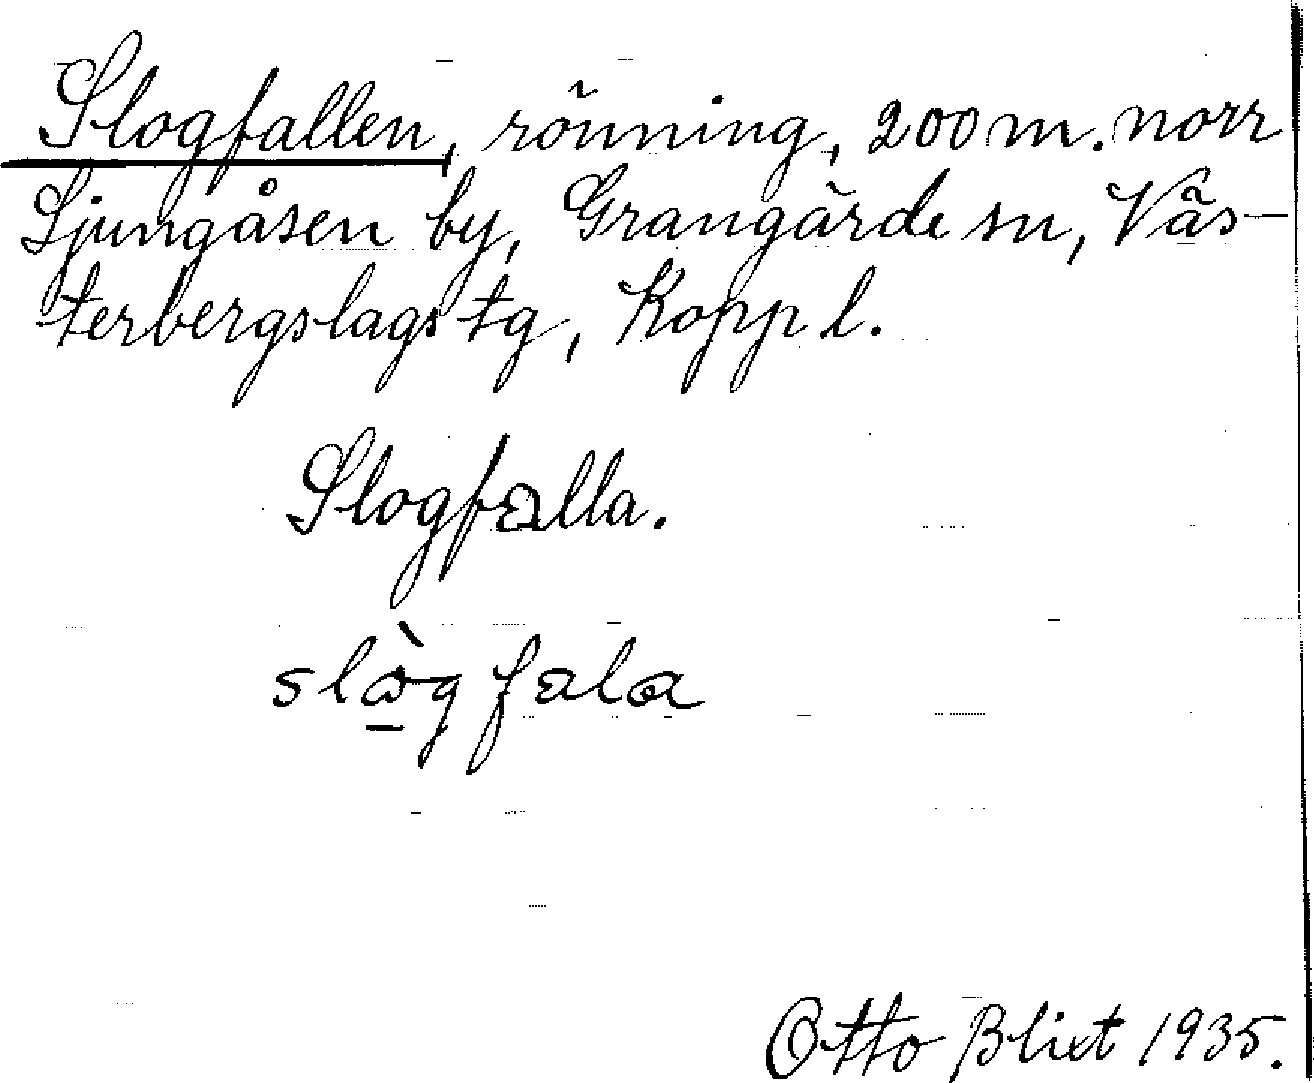 Slogfallen, rönning, 200 m. norr
Ljungåsen by, Grangärde sn, Väs-
terbergslags tg, Kopp l.
Slogfalla.
slòg fala
Otto Blixt 1935.